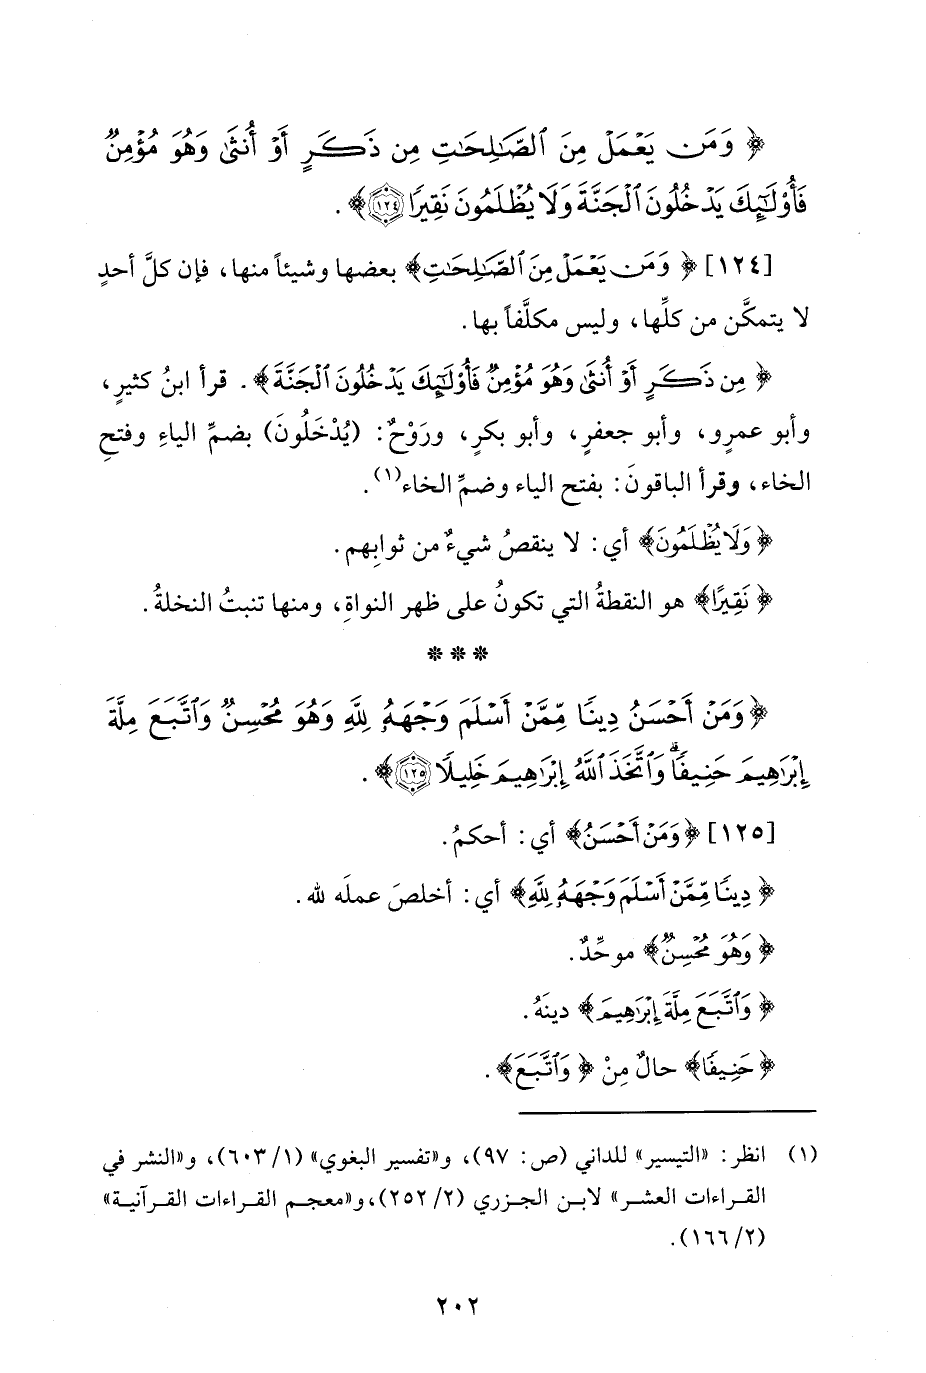 ﴿ وَمَن يَعْمَلْ مِنَ ٱلصَّـٰلِحَـٰتِ مِن ذَكَرٍ أَوْ أُنثَىٰ وَهُوَ مُؤْمِنٌ
فَأُوْلَـٰٓئِكَ يَدْخُلُونَ ٱلْجَنَّةَ وَلَا يُظْلَمُونَ نَقِيرًا ١٢٤﴾ .
[١٢٤] ﴿ وَمَن يَعْمَلْ مِنَ ٱلصَّـٰلِحَـٰتِ﴾ بعضها وشيئاً منها، فإن كلَّ أحدٍ
لا يتمكَّن من كلِّها، وليس مكلَّفاً بها.
﴿ مِن ذَكَرٍ أَوْ أُنثَىٰ وَهُوَ مُؤْمِنٌ فَأُوْلَـٰٓئِكَ يَدْخُلُونَ ٱلْجَنَّةَ﴾ . قرأ ابنُ كثيرٍ،
وأبو عمرٍو، وأبو جعفرٍ، وأبو بكرٍ، ورَوْحٌ: (يُدْخَلُونَ) بضمِّ الياءِ وفتحِ
الخاء، وقرأ الباقونَ: بفتح الياء وضمِّ الخاء(١).
﴿ وَلَا يُظْلَمُونَ﴾ أي: لا ينقصُ شيءٌ من ثوابِهم.
﴿ نَقِيرًا﴾ هو النقطةُ التي تكونُ على ظهر النواةِ، ومنها تنبتُ النخلةُ.
* * *
﴿ وَمَنْ أَحْسَنُ دِينًا مِّمَّنْ أَسْلَمَ وَجْهَهُۥ لِلَّهِ وَهُوَ مُحْسِنٌ وَٱتَّبَعَ مِلَّةَ
إِبْرَٰهِيمَ حَنِيفًاۗ وَٱتَّخَذَ ٱللَّهُ إِبْرَٰهِيمَ خَلِيلًا ١٢٥﴾ .
[١٢٥] ﴿ وَمَنْ أَحْسَنُ﴾ أي: أحكمُ.
﴿ دِينًا مِّمَّنْ أَسْلَمَ وَجْهَهُۥ لِلَّهِ﴾ أي: أخلصَ عملَه لله.
﴿ وَهُوَ مُحْسِنٌ﴾ موحِّدٌ.
﴿ وَٱتَّبَعَ مِلَّةَ إِبْرَٰهِيمَ﴾ دينَهُ.
﴿ حَنِيفًا﴾ حالٌ مِنْ ﴿ وَٱتَّبَعَ﴾ .
(١) انظر: «التيسير» للداني (ص: ٩٧)، و«تفسير البغوي» (١/ ٦٠٣)، و«النشر في
القراءات العشر» لابن الجزري (٢/ ٢٥٢)، و«معجم القراءات القرآنية»
(٢/ ١٦٦).
٢٠٢